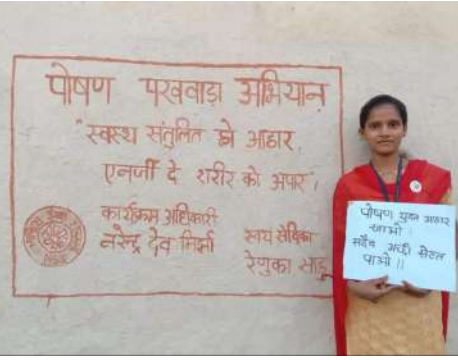 पोषण पखवाड़ा अभियान
"स्वस्थ संतुलित हो आहार,
एनर्जी दे शरीर को अपार",
कार्यक्रम अधिकारी
नरेन्द्र देव मिश्रा
स्वयं सेविका
रेणुका साहू
पोषण युक्त आहार
खाओ
सदैव अच्छी सेहत
पाओ ||